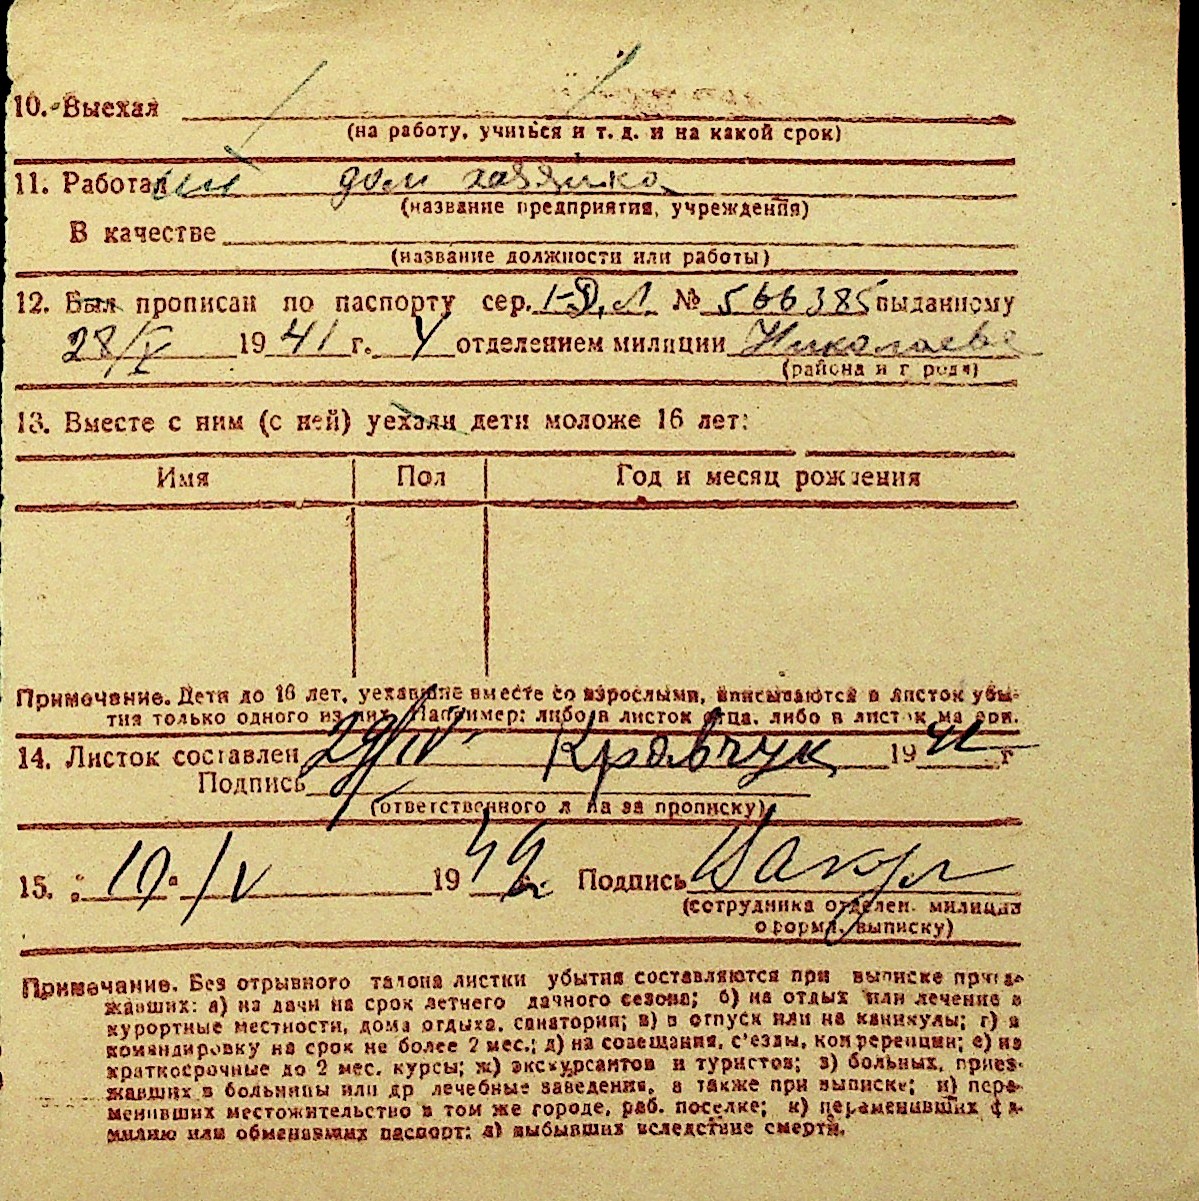 10. Выехал
(на работу, учиться и т. д. и на какой срок)
11. Работал дом хозяйка
(название предприятия, учреждения)
В качестве
(название должности или работы)
12. Был прописан по паспорту сер. 1-Д.Л. № 566385 выданному
28/X 1941 г. У отделением милиции Николаева
(района и города)
13. Вместе с ним (с ней) уехали дети моложе 16 лет:
Имя Пол Год и месяц рождения
Примечание. Дети до 16 лет, уехавшие вместе со взрослыми, вписываются в листок убы-
тия только одного из них. Например: либо в листок отца, либо в листок матери.
14. Листок составлен 29/IV Кравчук 1942 г
Подпись
(ответственного лица за прописку)
15. „ “ /IV 1942 г. Подпись
(сотрудника отделен. милиции
оформ. выписку)
Примечание. Без отрывного талона листки убытия составляются при выписке приез-
жавших: а) на дачи на срок летнего дачного сезона; б) на отдых или лечение в
курортные местности, дома отдыха, санатории; в) в отпуск или на каникулы; г) в
командировку на срок не более 2 мес.; д) на совещания, с'езды, конференции; е) на
краткосрочные до 2 мес. курсы; ж) экскурсантов и туристов; з) больных, приез-
жавших в больницы или др лечебные заведения, а также при выписке; и) пере-
менивших местожительство в том же городе, раб. поселке; к) переменивших фа-
милию или обменявших паспорт; л) выбывших вследствие смерти.